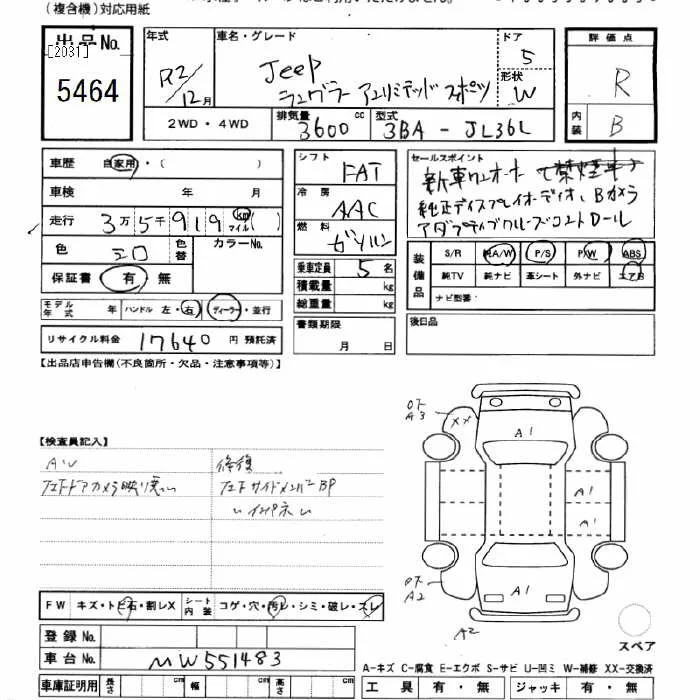 (複合機)対応用紙
出品No.
[2031]
5464
年式
R2/12月
車名・グレード
Jeep
ラングラー アンリミテッド スポーツ
ドア
5
形状
W
2WD・4WD
排気量
3600cc
型式
3BA - JL36L
評価点
R
内装
B
車歴 自家用・( )
車検 年 月
走行 3万5千919 km マイル( )
色 シロ
色替
カラーNo.
保証書 有・無
モデル年式 年 ハンドル 左・右 ディーラー・並行
リサイクル料金 17640円 預託済
シフト FAT
冷房 AAC
燃料 ガソリン
乗車定員 5名
積載量 kg
総重量 kg
書類期限
月 日
セールスポイント
新車ワンオーナー 禁煙車
純正ディスプレイオーディオ、Bカメラ
アダプティブクルーズコントロール
装備品
S/R 純A/W P/S P/W ABS
純TV 純ナビ 革シート 外ナビ エアB
ナビ型番:
後日品
【出品店申告欄(不良箇所・欠品・注意事項等)】
【検査員記入】
A/W
修復
左サイドメンバーBP
A3
XX
A1
A1
A1
A1
A2
A2
スペア
FW キズ・トビ石・割レX
シート内装 コゲ・穴・汚レ・シミ・破レ・スレ
登録No.
車台No. MW551483
車庫証明用 長さ cm 幅 cm 高さ cm
A-キズ C-腐食 E-エクボ S-サビ U-凹ミ W-補修 XX-交換済
工具 有・無 ジャッキ 有・無